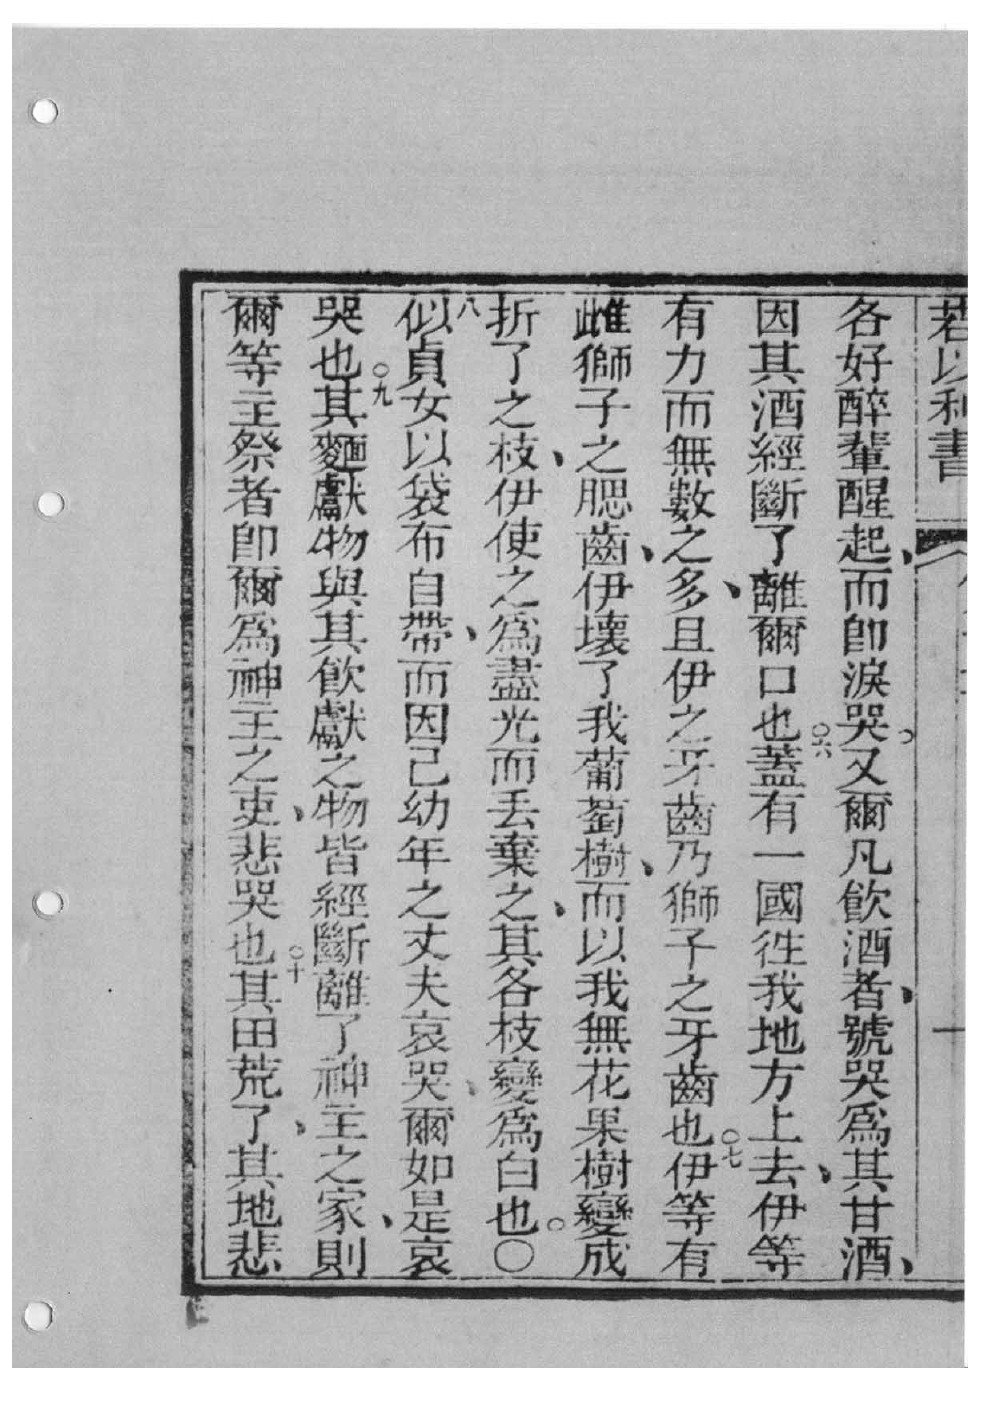 若以利書
各好醉輩醒起、而即淚哭。又爾凡飲酒者、號哭爲其甘酒、
因其酒經斷了離爾口也○六蓋有一國徃我地方上去、伊等
有力而無數之多、且伊之牙齒乃獅子之牙齒也○七伊等有
雌獅子之腮齒、伊壞了我葡萄樹、而以我無花果樹變成
折了之枝、伊使之爲盡光而丢棄之、其各枝變爲白也。○
八似貞女以袋布自帶、而因己幼年之丈夫哀哭、爾如是哀
哭也○九其麵獻物與其飲獻之物皆經斷離了神主之家、則
爾等主祭者即爾爲神主之吏、悲哭也○十其田荒了、其地悲